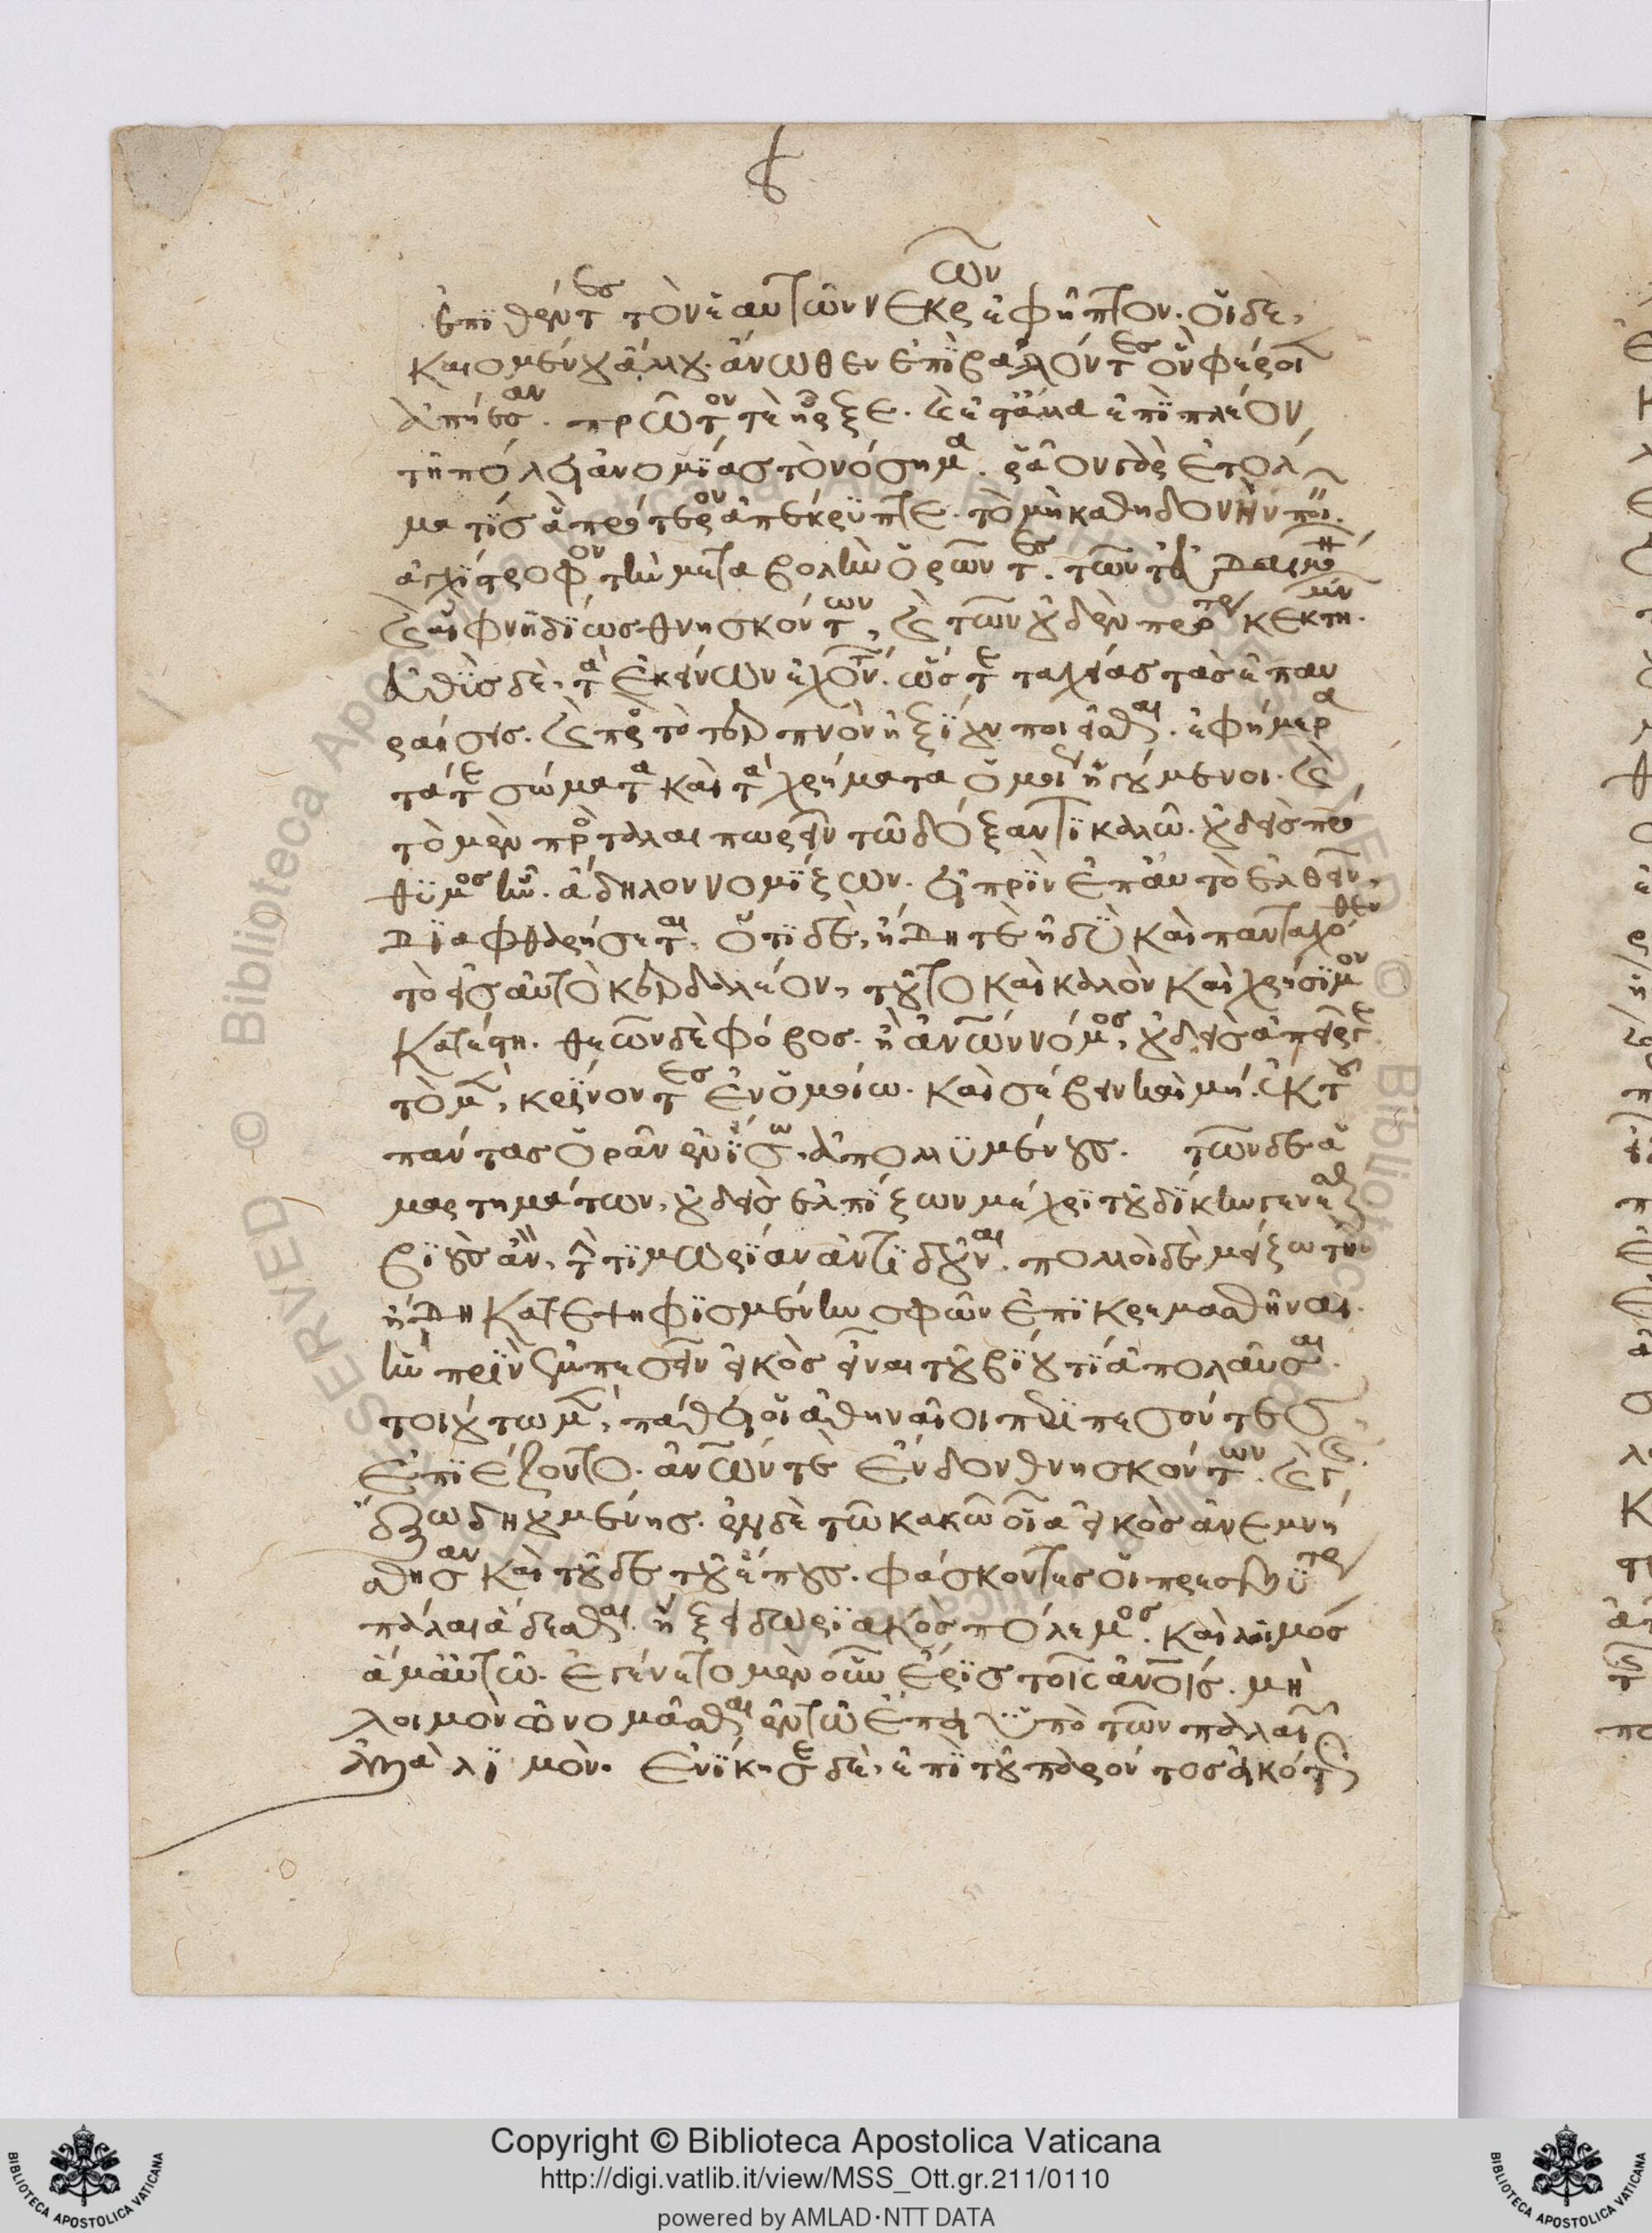 ἐπιθέντες τὸν ἑαυτῶν νεκρῶν ἐφῆπτον. οἵ δὲ,
καιομένου ἄλλου. ἄνωθεν ἐπιβαλόντες ὃν φέροιεν
ἀπήεσαν. πρῶτον τὲ ἦρξε. καὶ ἐς τἄλλα ἐπὶ πλέον
τῆ πόλει ἀνομίας τὸ νόσημα. ῥᾶον γὰρ ἐτόλ
μα τίς ἃ πρότερον ἀπεκρύπτε. τὸ μὴ καθηδονὴν ποι.
ἀγχίστροφον τὴν μεταβολὴν ὁρῶντες. τῶν τε
καὶ αἰφνηδίως θνησκόντων, καὶ τῶν οὐδὲν πρότερον κεκτημένων.
εὐθὺς δὲ, τὰ ἐκείνων ἐχόντων. ὥστε ταχείας τὰς ἐπαυ
ραίσεις. καὶ πρὸς τὸ τερπνὸν ἠξίουν ποιεῖσθαι. ἐφήμερα
τά τε σώματα καὶ τὰ χρήματα ὁμοίως ἡγούμενοι. καὶ
τὸ μὲν προταλαιπωρεῖν τῶ δόξαντι καλῶ. οὐδεὶς πρό
θυμος ἦν. ἄδηλον νομίζων. εἰ πρὶν ἐπ' αὐτὸ ἐλθεῖν,
διαφθαρήσεται. ὅτι δὲ, ἤδη τὲ ἡδὺ καὶ πανταχόθεν
τὸ εἰς αὐτὸ κερδαλέον, τοῦτο καὶ καλὸν καὶ χρήσιμον
κατέστη. θεῶν δὲ φόβος. ἢ ἀνων νόμος, οὐδεὶς ἀπεῖργε.
τὸ μὲν, κρίνοντες ἐν ὁμοίω. καὶ σέβειν καὶ μή. ἐκ τοῦ
πάντας ὁρᾶν ἐν ἴσω. ἀπολλυμένους. τῶν δὲ ἁ
μαρτημάτων, οὐδεὶς ἐλπίζων μέχρι τοῦ δίκην γενέσθαι
βιοὺς ἂν, τὴν τιμωρίαν ἀντιδοῦναι. πολλοὶ δὲ μείζω τὴν
ἤδη κατεψηφισμένην σφῶν ἐπικρεμασθῆναι.
ἣν πρὶν ἐμπεσεῖν εἰκὸς εἶναι τοῦ βίου τί ἀπολαῦσαι.
τοιούτω μὲν, πάθει οἱ ἀθηναῖοι περιπεσόντες,
ἐπιέζοντο. ἀνων τὲ ἔνδον θνησκόντων. καὶ γῆς
ἔξω δηουμένης. ἐν δὲ τῶ κακῶ οἷα εἰκὸς ἀνεμνή
σθησαν καὶ τοῦδε τοῦ ἔπους. φάσκοντες οἱ πρεσβύτεροι
πάλαι ἄδεσθαι. ἥξει δωριακὸς πόλεμος. καὶ λοιμὸς
ἅμ' αὐτῶ. ἐγένετο μὲν οὖν ἔρις τοῖς ἀνοις. μὴ
λοιμὸν ὠνομᾶσθαι ἐν τῶ ἔπει ὑπὸ τῶν παλαιῶν
ἀλλὰ λιμὸν. ἐνίκησε δὲ, ἐπὶ τοῦ παρόντος εἰκότως
Copyright © Biblioteca Apostolica Vaticana
http://digi.vatlib.it/view/MSS_Ott.gr.211/0110
powered by AMLAD·NTT DATA